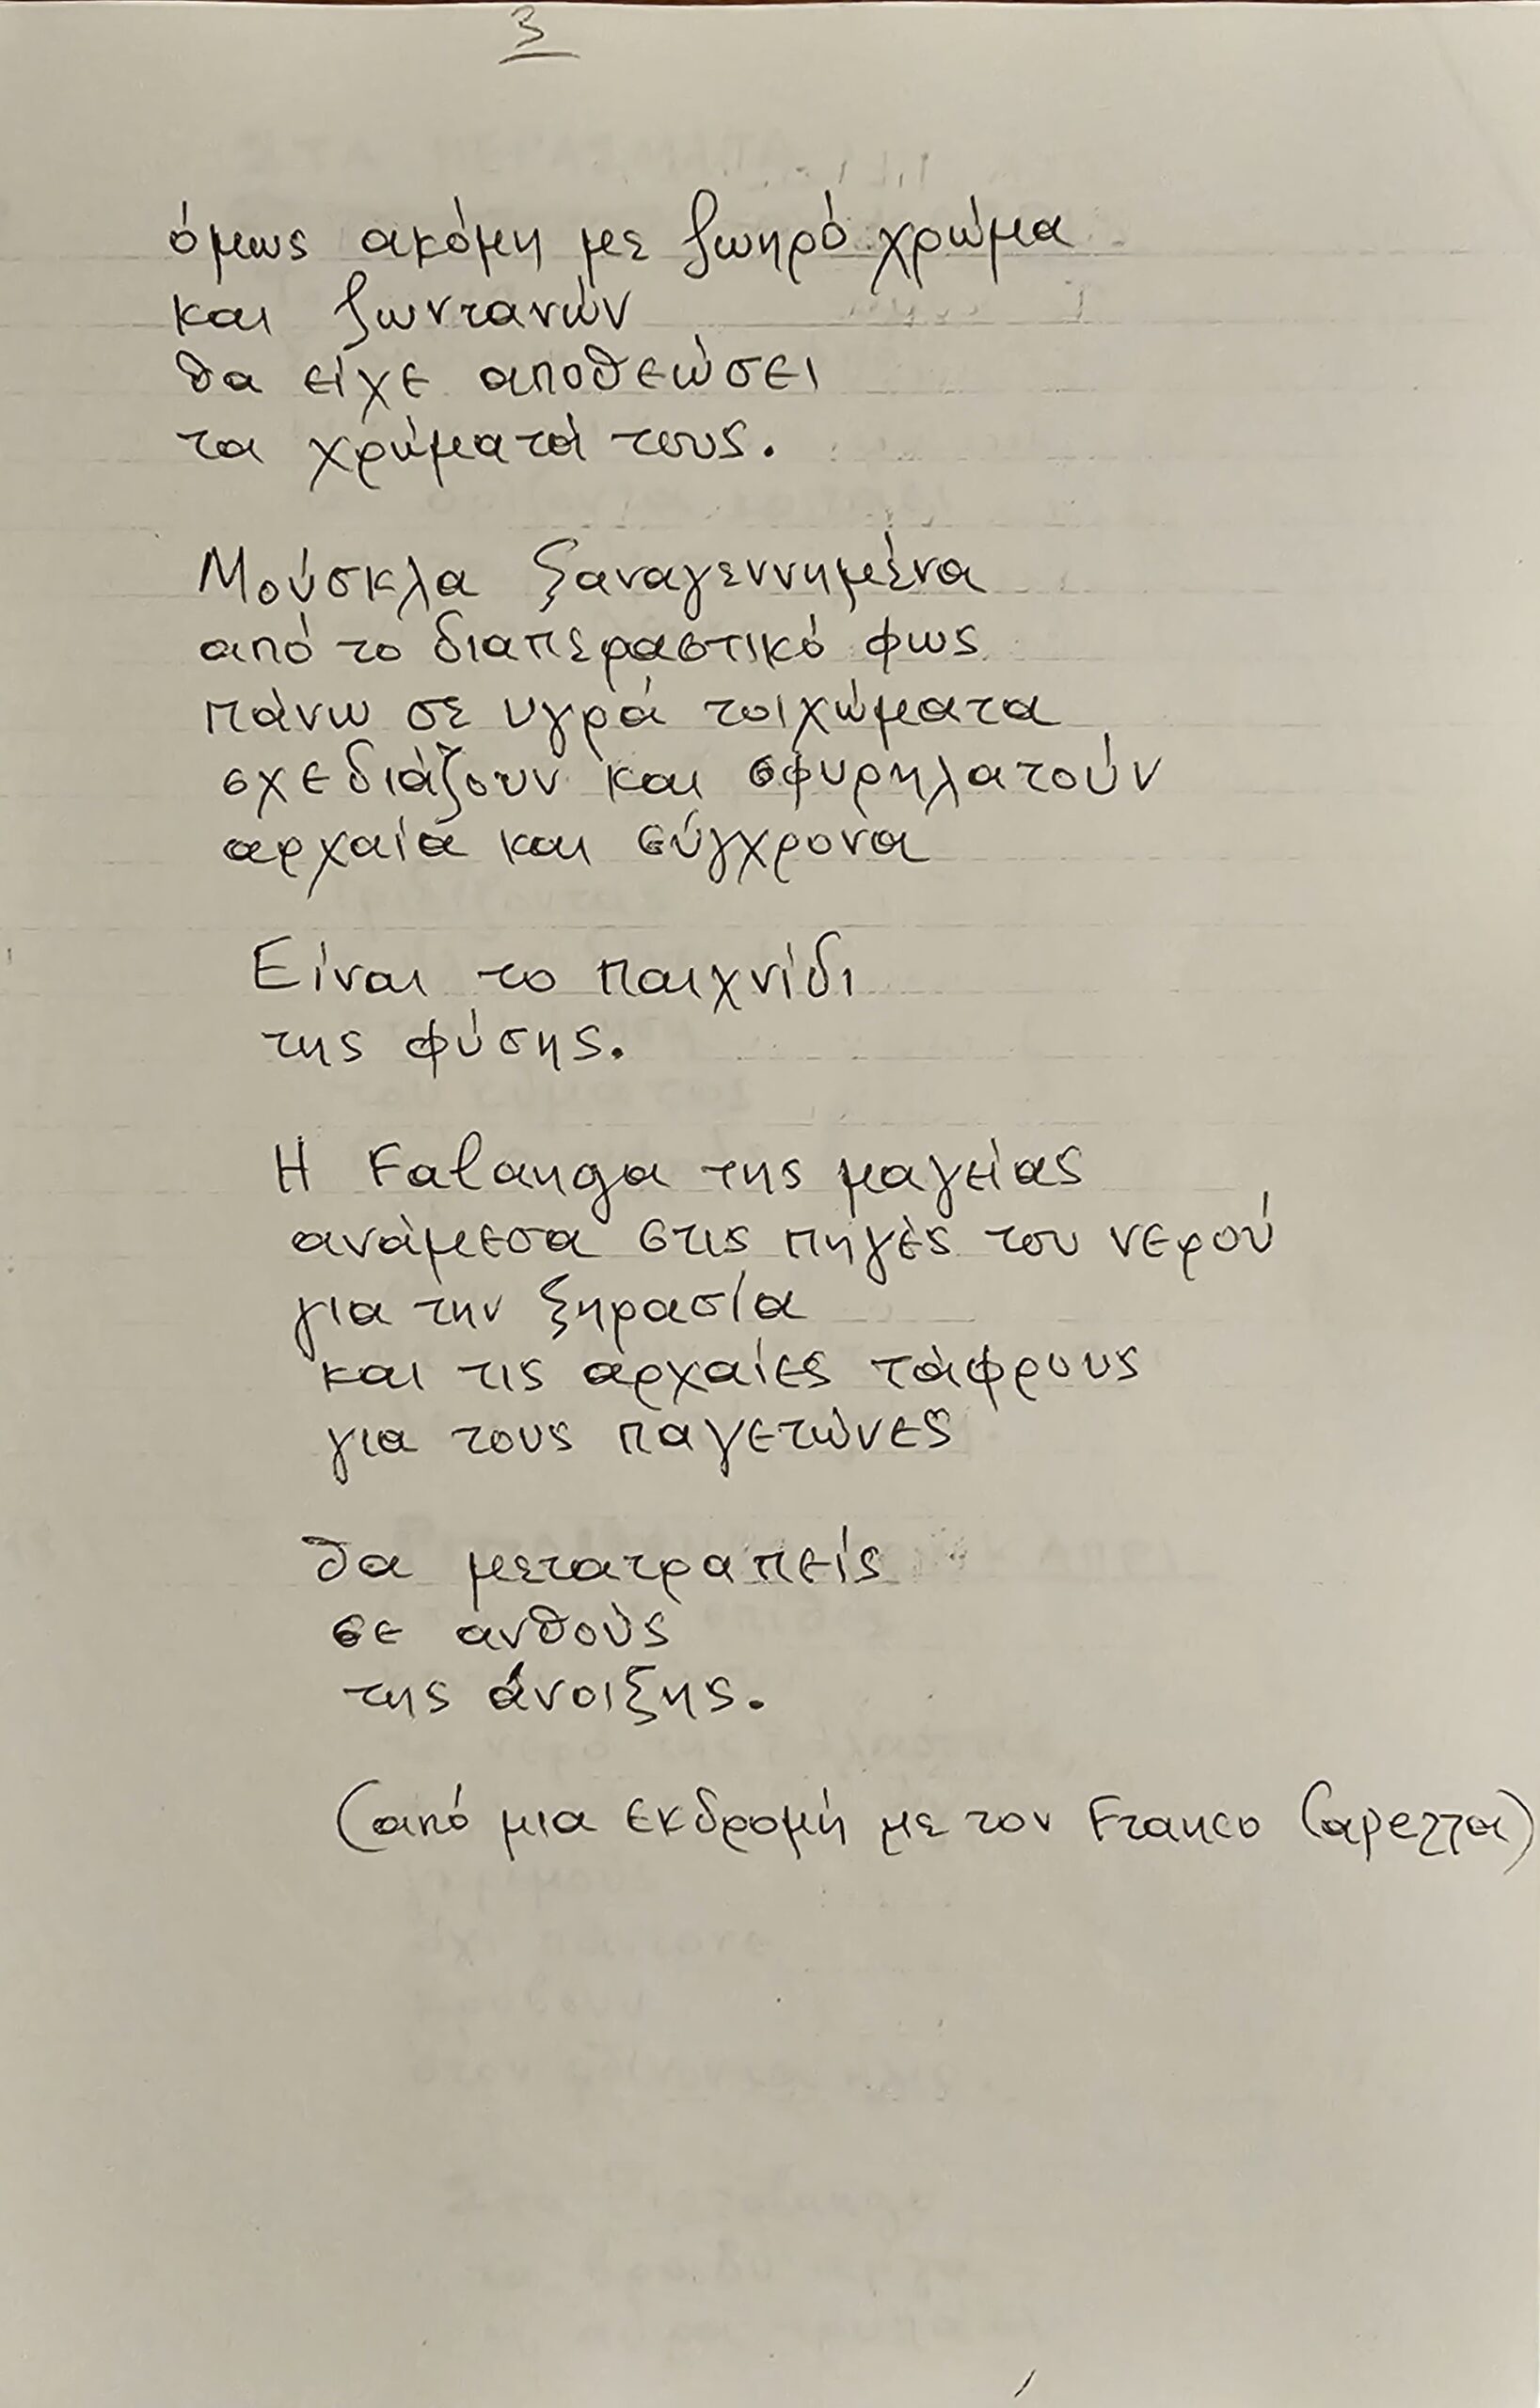 3
όμως ακόμη με ζωηρό χρώμα
και ζωντανών
θα είχε αποθεώσει
τα χρώματά τους.
Μούσκλα ξαναγεννημένα
από το διαπεραστικό φως
πάνω σε υγρά τοιχώματα
σχεδιάζουν και σφυρηλατούν
αρχαία και σύγχρονα
Είναι το παιχνίδι
της φύσης.
Η Falanga της μαγείας
ανάμεσα στις πηγές του νερού
για την ξηρασία
και τις αρχαίες τάφρους
για τους παγετώνες
θα μετατραπείς
σε ανθούς
της άνοιξης.
(από μια εκδρομή με τον Franco